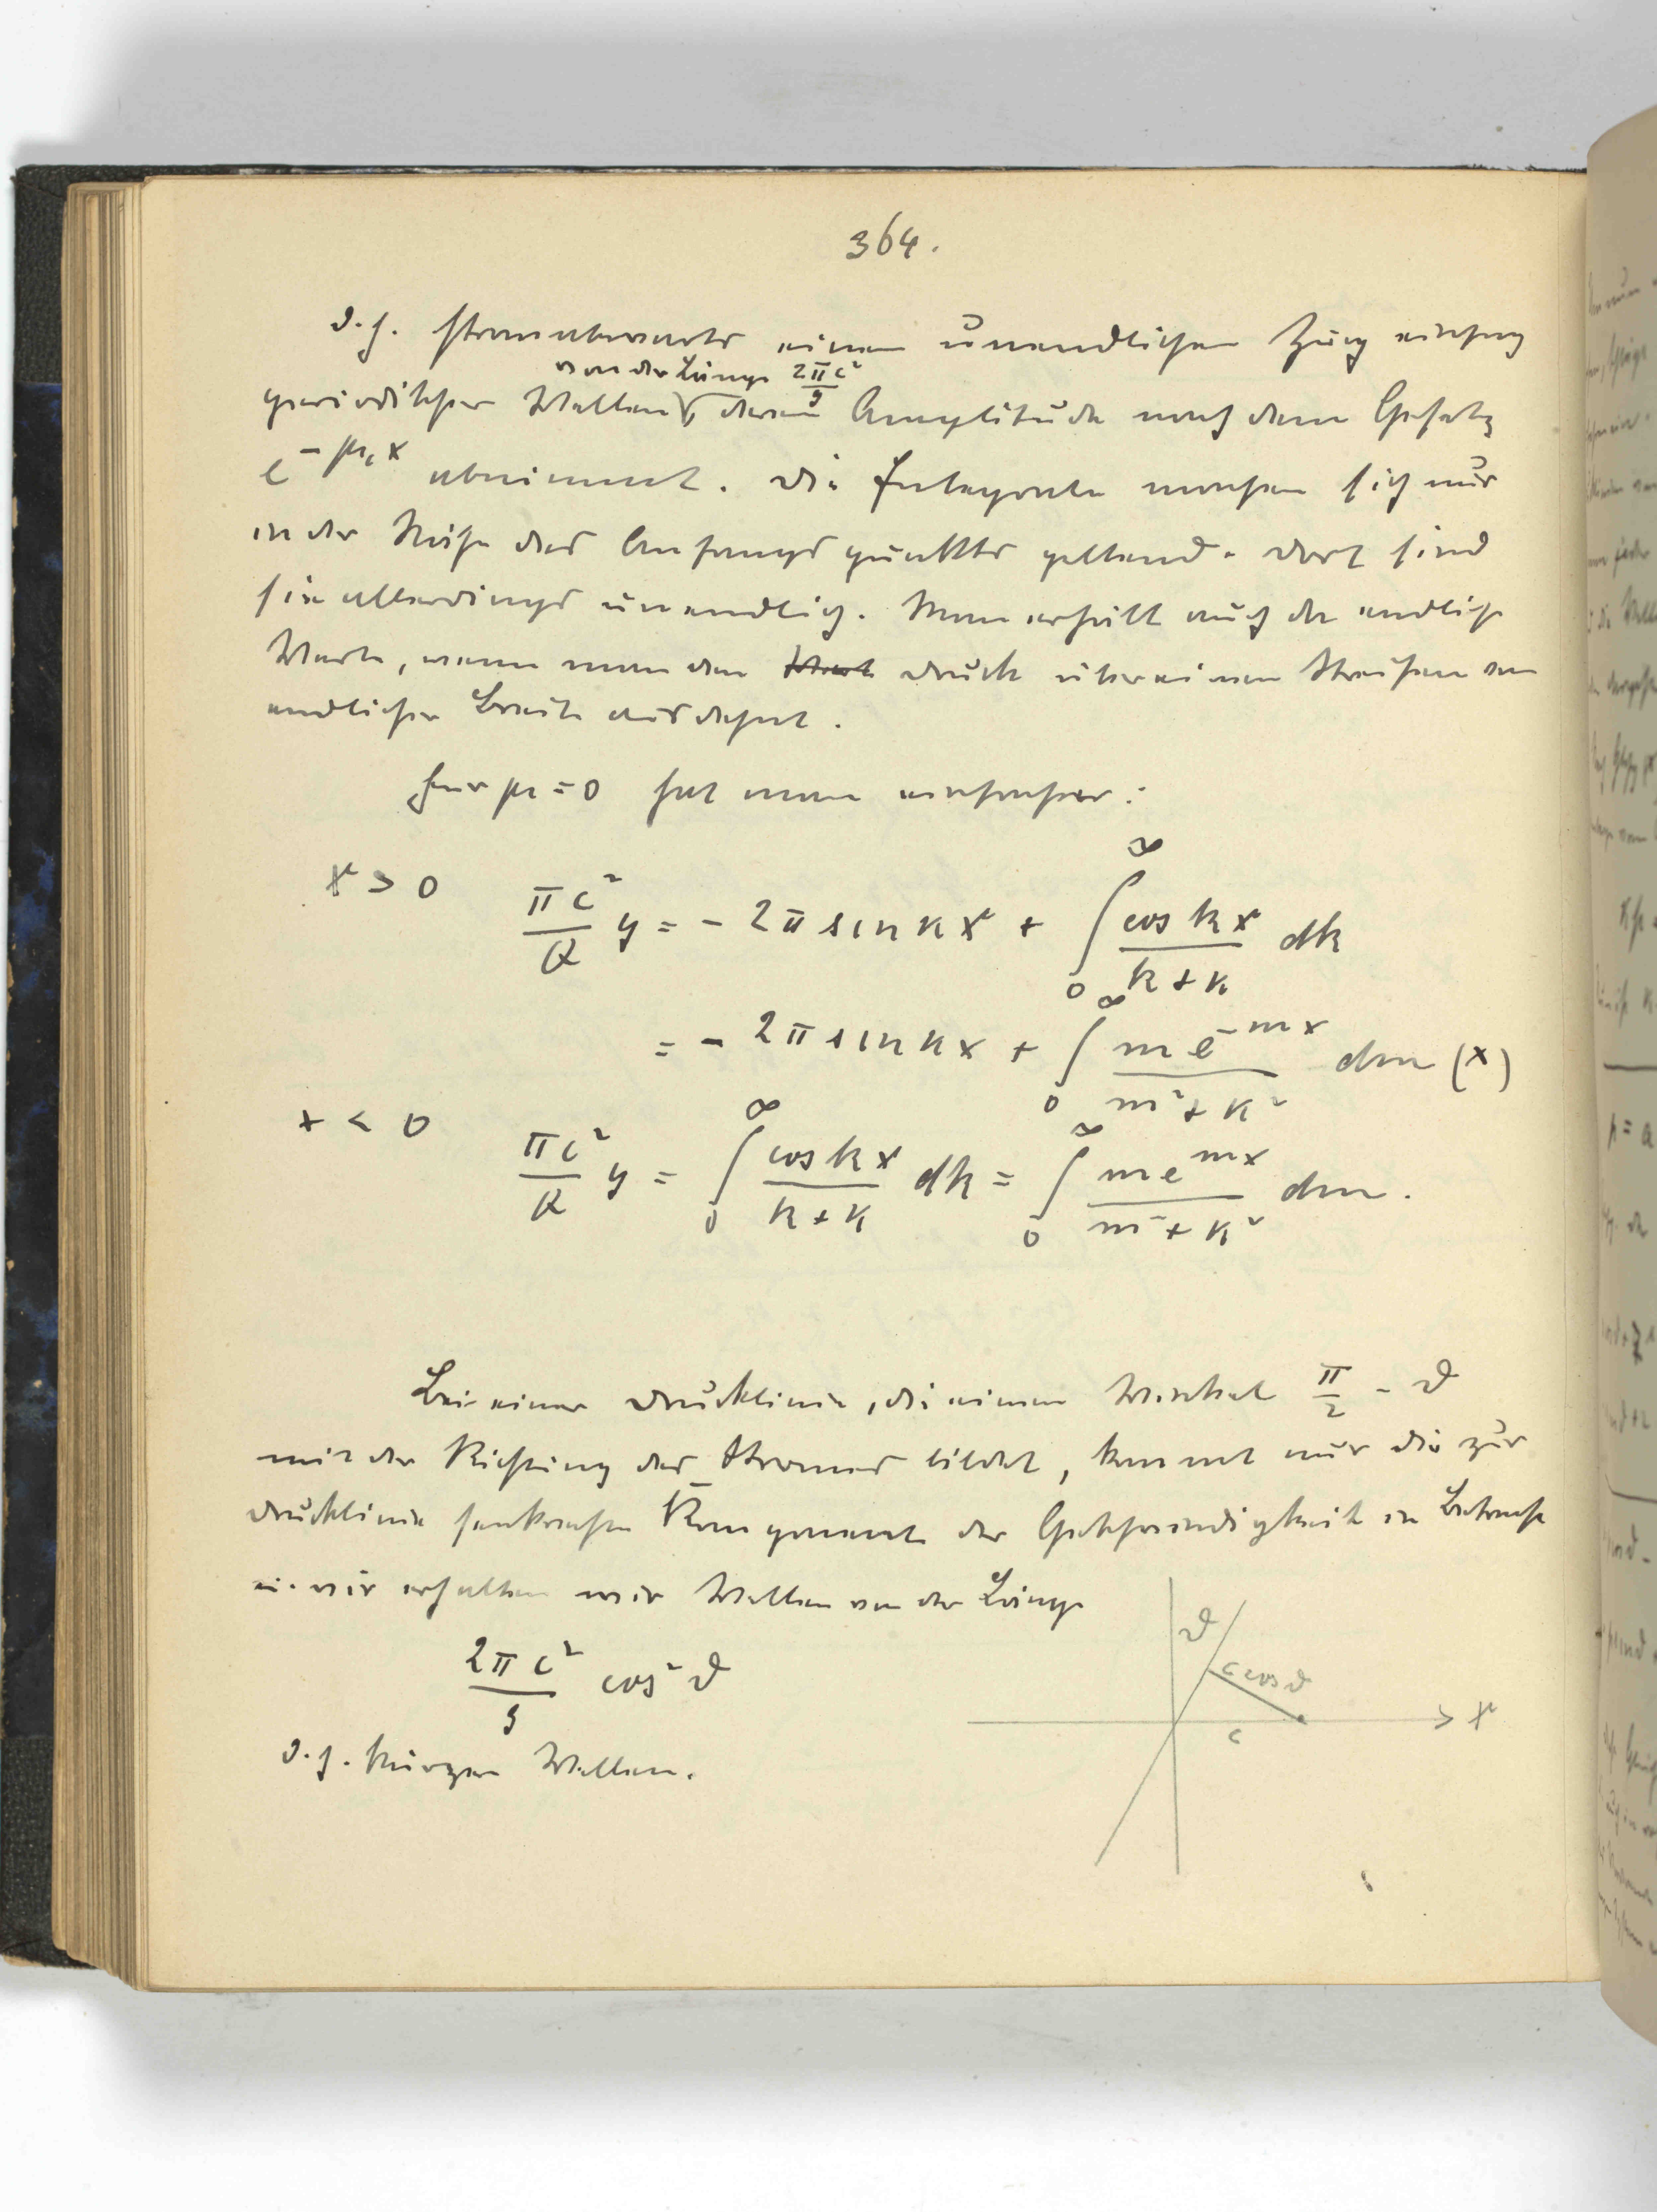 364.
d.h. stromabwärts einen unendlichen Zug einfach
von der Länge 2πc²/g
periodischer Wellen, deren Amplitude nach dem Gesetz
e^{-μ₁x} abnimmt. Die Integrale machen sich nur
in der Nähe des Anfangspunktes geltend. Dort sind
sie allerdings unendlich. Man erhält auch da endliche
Werte, wenn man den Druck über einen Streifen von
endlicher Breite ausdehnt.
Für μ = 0 hat man einfacher:
x > 0 πc²/Q y = - 2π sin κx + ∫₀^∞ cos kx/(k + κ) dk
= - 2π sin κx + ∫₀^∞ m e^{-mx}/(m² + κ²) dm (x)
x < 0 πc²/Q y = ∫₀^∞ cos kx/(k + κ) dk = ∫₀^∞ m e^{mx}/(m² + κ²) dm.
Bei einer Drucklinie, die einen Winkel π/2 - ϑ
mit der Richtung des Stromes bildet, kommt nur die zur
Drucklinie senkrechte Komponente der Geschwindigkeit in Betracht
u. wir erhalten wir Wellen von der Länge
2πc²/g cos² ϑ
d.h. kürzere Wellen.
ϑ
c cos ϑ
c
x